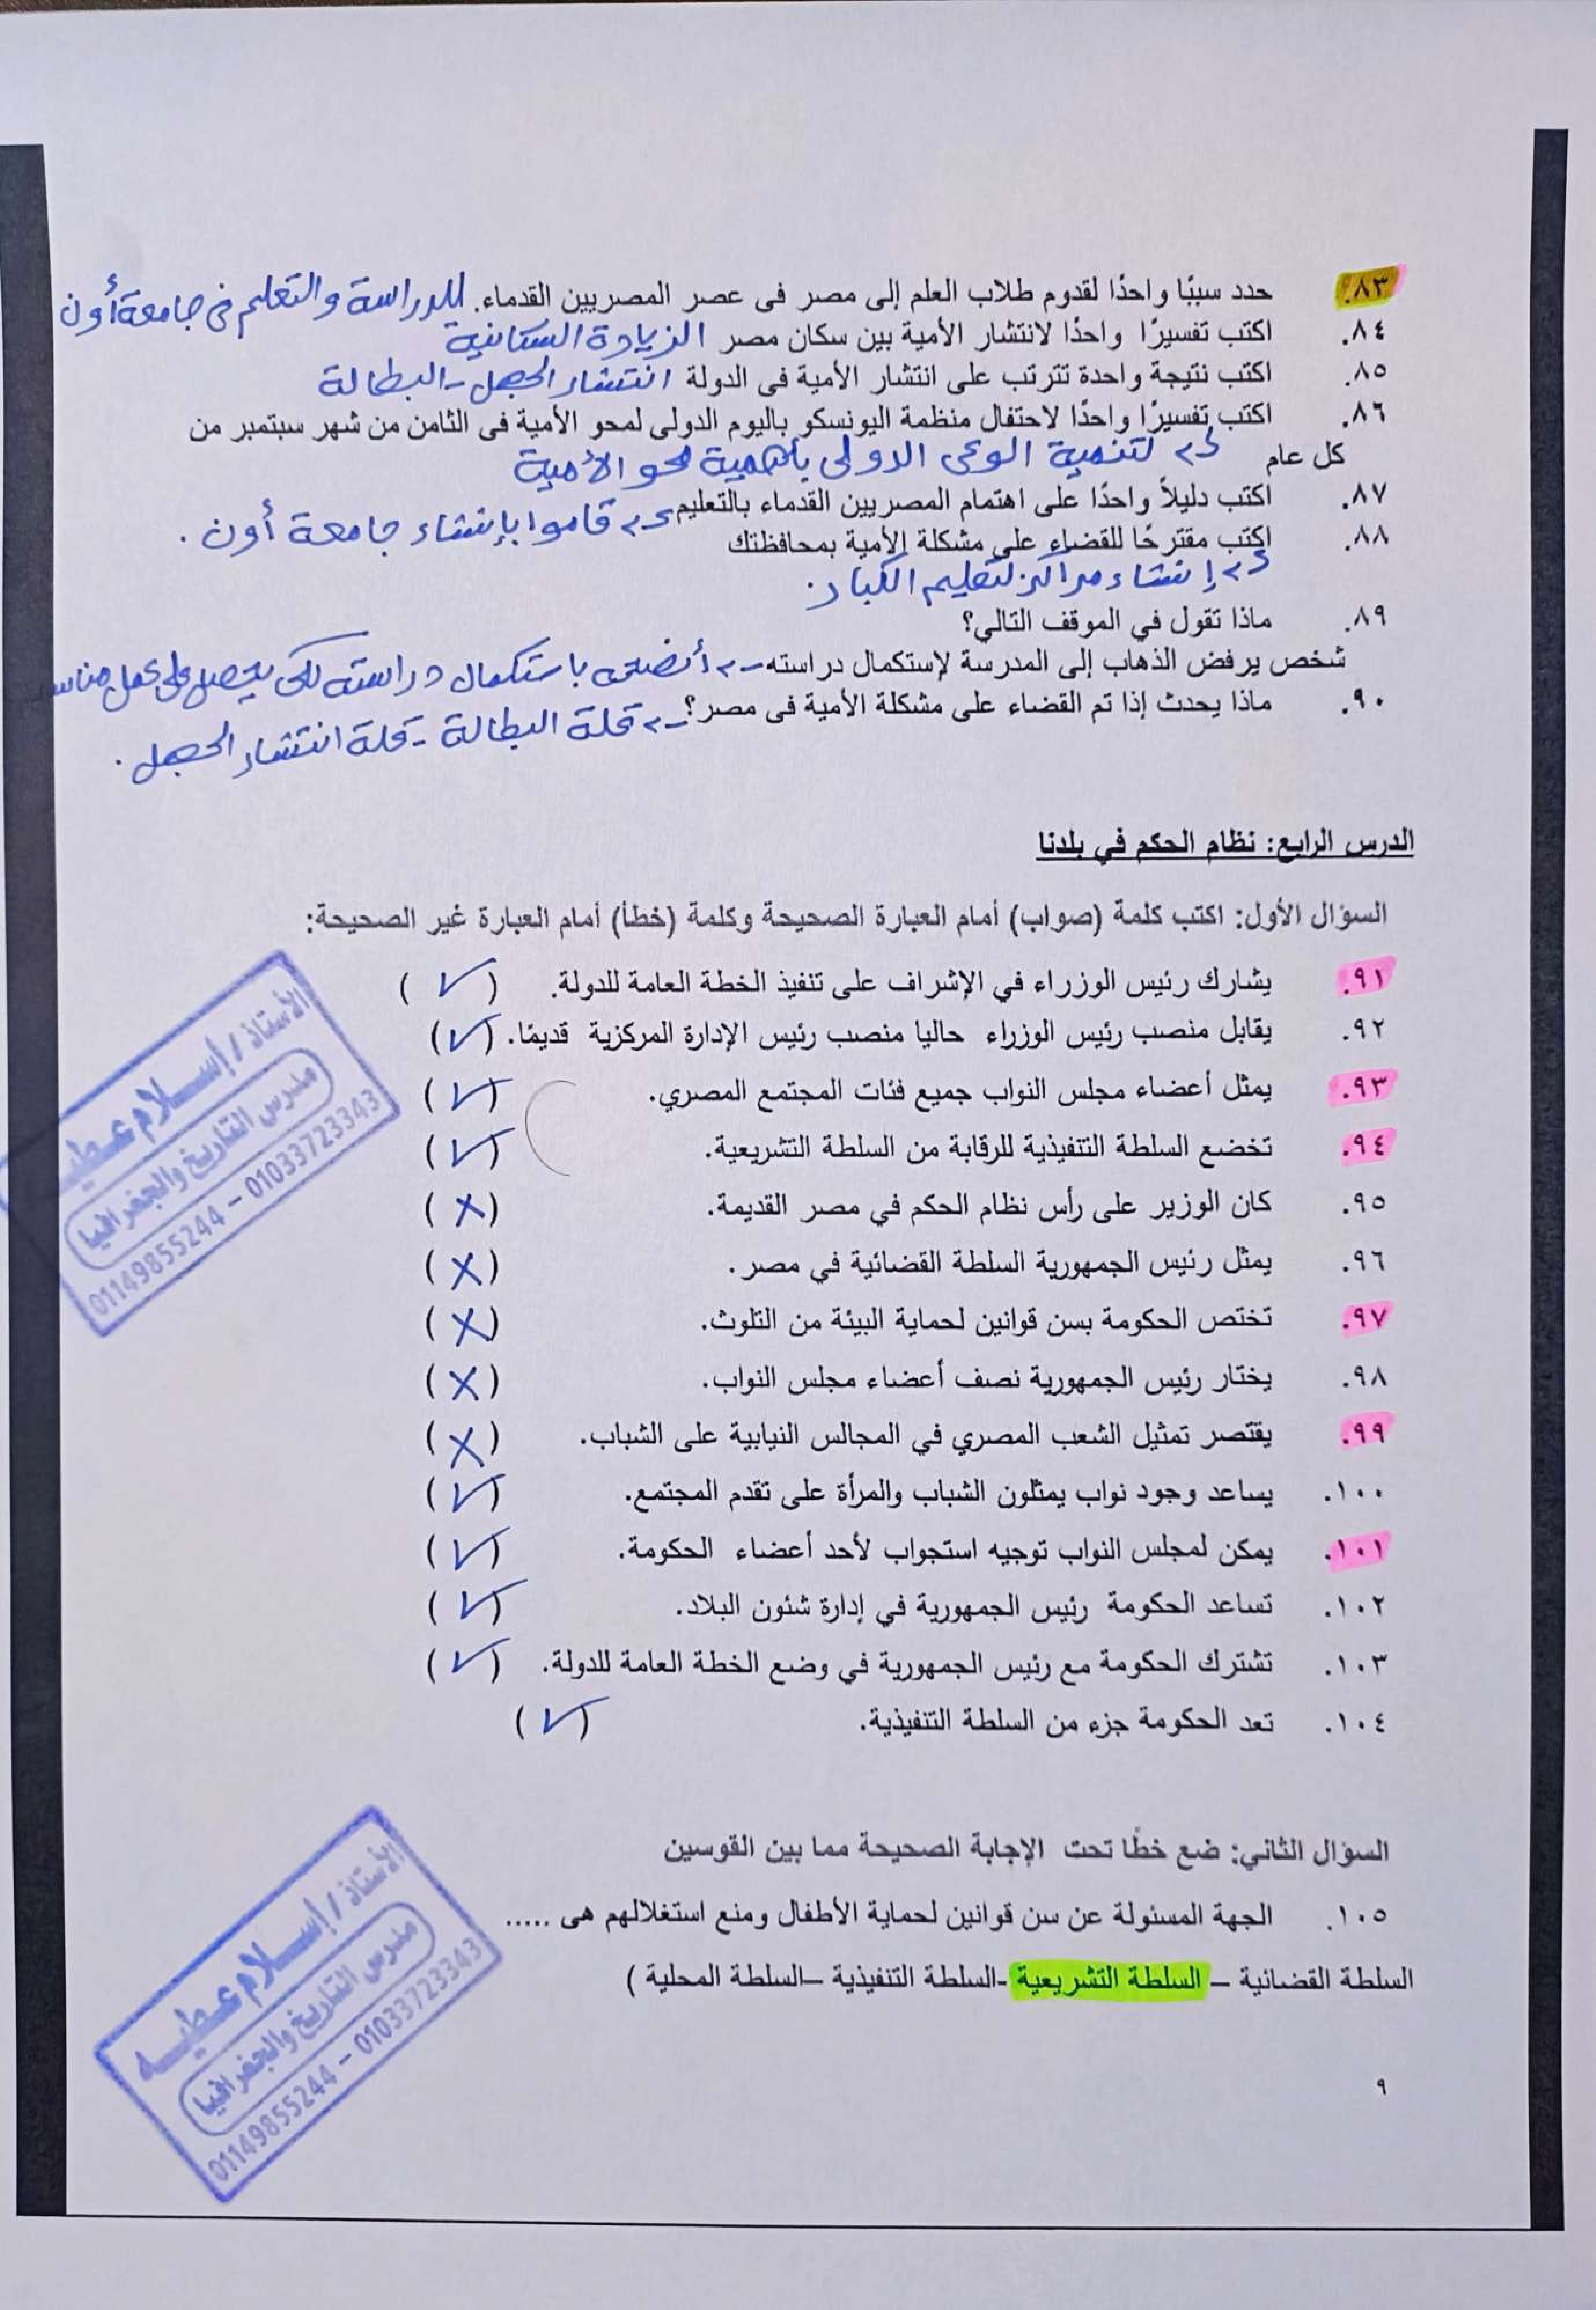 ٨٣. حدد سببًا واحدًا لقدوم طلاب العلم إلى مصر فى عصر المصريين القدماء. للدراسة والتعليم فى جامعة أون
٨٤. اكتب تفسيرًا واحدًا لانتشار الأمية بين سكان مصر الزيادة السكانية
٨٥. اكتب نتيجة واحدة تترتب على انتشار الأمية فى الدولة انتشار الجهل - البطالة
٨٦. اكتب تفسيرًا واحدًا لاحتفال منظمة اليونسكو باليوم الدولى لمحو الأمية فى الثامن من شهر سبتمبر من
كل عام لتنمية الوعى الدولى بأهمية محو الأمية
٨٧. اكتب دليلاً واحدًا على اهتمام المصريين القدماء بالتعليم قاموا بإنشاء جامعة أون .
٨٨. اكتب مقترحًا للقضاء على مشكلة الأمية بمحافظتك
إنشاء مراكز لتعليم الكبار .
٨٩. ماذا تقول في الموقف التالي؟
شخص يرفض الذهاب إلى المدرسة لإستكمال دراسته أنصحه باستكمال دراسته لكى يحصل على عمل مناسب
٩٠. ماذا يحدث إذا تم القضاء على مشكلة الأمية فى مصر؟ قلة البطالة - قلة انتشار الجهل .
الدرس الرابع: نظام الحكم في بلدنا
السؤال الأول: اكتب كلمة (صواب) أمام العبارة الصحيحة وكلمة (خطأ) أمام العبارة غير الصحيحة:
٩١. يشارك رئيس الوزراء في الإشراف على تنفيذ الخطة العامة للدولة. (✓)
٩٢. يقابل منصب رئيس الوزراء حاليا منصب رئيس الإدارة المركزية قديمًا. (✓)
٩٣. يمثل أعضاء مجلس النواب جميع فئات المجتمع المصري. (✓)
٩٤. تخضع السلطة التنفيذية للرقابة من السلطة التشريعية. (✓)
٩٥. كان الوزير على رأس نظام الحكم في مصر القديمة. (X)
٩٦. يمثل رئيس الجمهورية السلطة القضائية في مصر . (X)
٩٧. تختص الحكومة بسن قوانين لحماية البيئة من التلوث. (X)
٩٨. يختار رئيس الجمهورية نصف أعضاء مجلس النواب. (X)
٩٩. يقتصر تمثيل الشعب المصري في المجالس النيابية على الشباب. (X)
١٠٠. يساعد وجود نواب يمثلون الشباب والمرأة على تقدم المجتمع. (✓)
١٠١. يمكن لمجلس النواب توجيه استجواب لأحد أعضاء الحكومة. (✓)
١٠٢. تساعد الحكومة رئيس الجمهورية في إدارة شئون البلاد. (✓)
١٠٣. تشترك الحكومة مع رئيس الجمهورية في وضع الخطة العامة للدولة. (✓)
١٠٤. تعد الحكومة جزء من السلطة التنفيذية. (✓)
الأستاذ / إسلام عطيه
مدرس التاريخ والجغرافيا
01149855244 – 01033723343
السؤال الثاني: ضع خطًا تحت الإجابة الصحيحة مما بين القوسين
١٠٥. الجهة المسئولة عن سن قوانين لحماية الأطفال ومنع استغلالهم هى .....
السلطة القضائية – السلطة التشريعية -السلطة التنفيذية –السلطة المحلية )
الأستاذ / إسلام عطيه
مدرس التاريخ والجغرافيا
01149855244 – 01033723343
٩